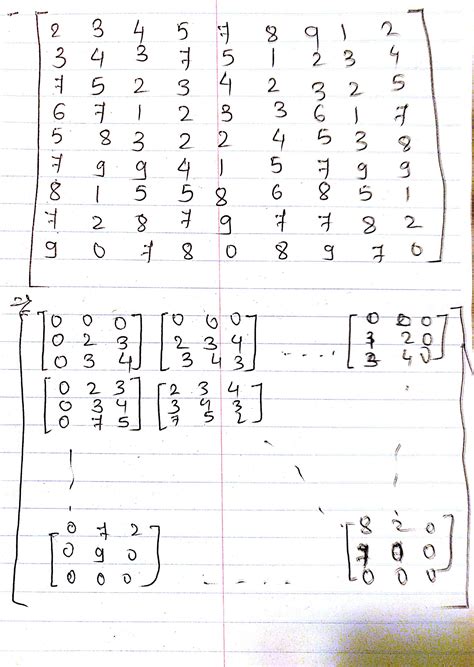 2 3 4 5 7 8 9 1 2
3 4 3 7 5 1 2 3 4
7 5 2 3 4 2 3 2 5
6 7 1 2 3 3 6 1 7
5 8 3 2 2 4 5 3 8
7 9 9 4 1 5 7 9 9
8 1 5 5 8 6 8 5 1
7 2 8 7 9 7 7 8 2
9 0 7 8 0 8 9 7 0
0 0 0 0 0 0 0 0 0
0 2 3 2 3 4 2 0
0 3 4 3 4 3 ..... 4 0
0 2 3 2 3 4
0 3 4 3 4 3
0 7 5 7 5 2
0 7 2 8 2 0
0 9 0 0 0
0 0 0 ..... 0 0 0